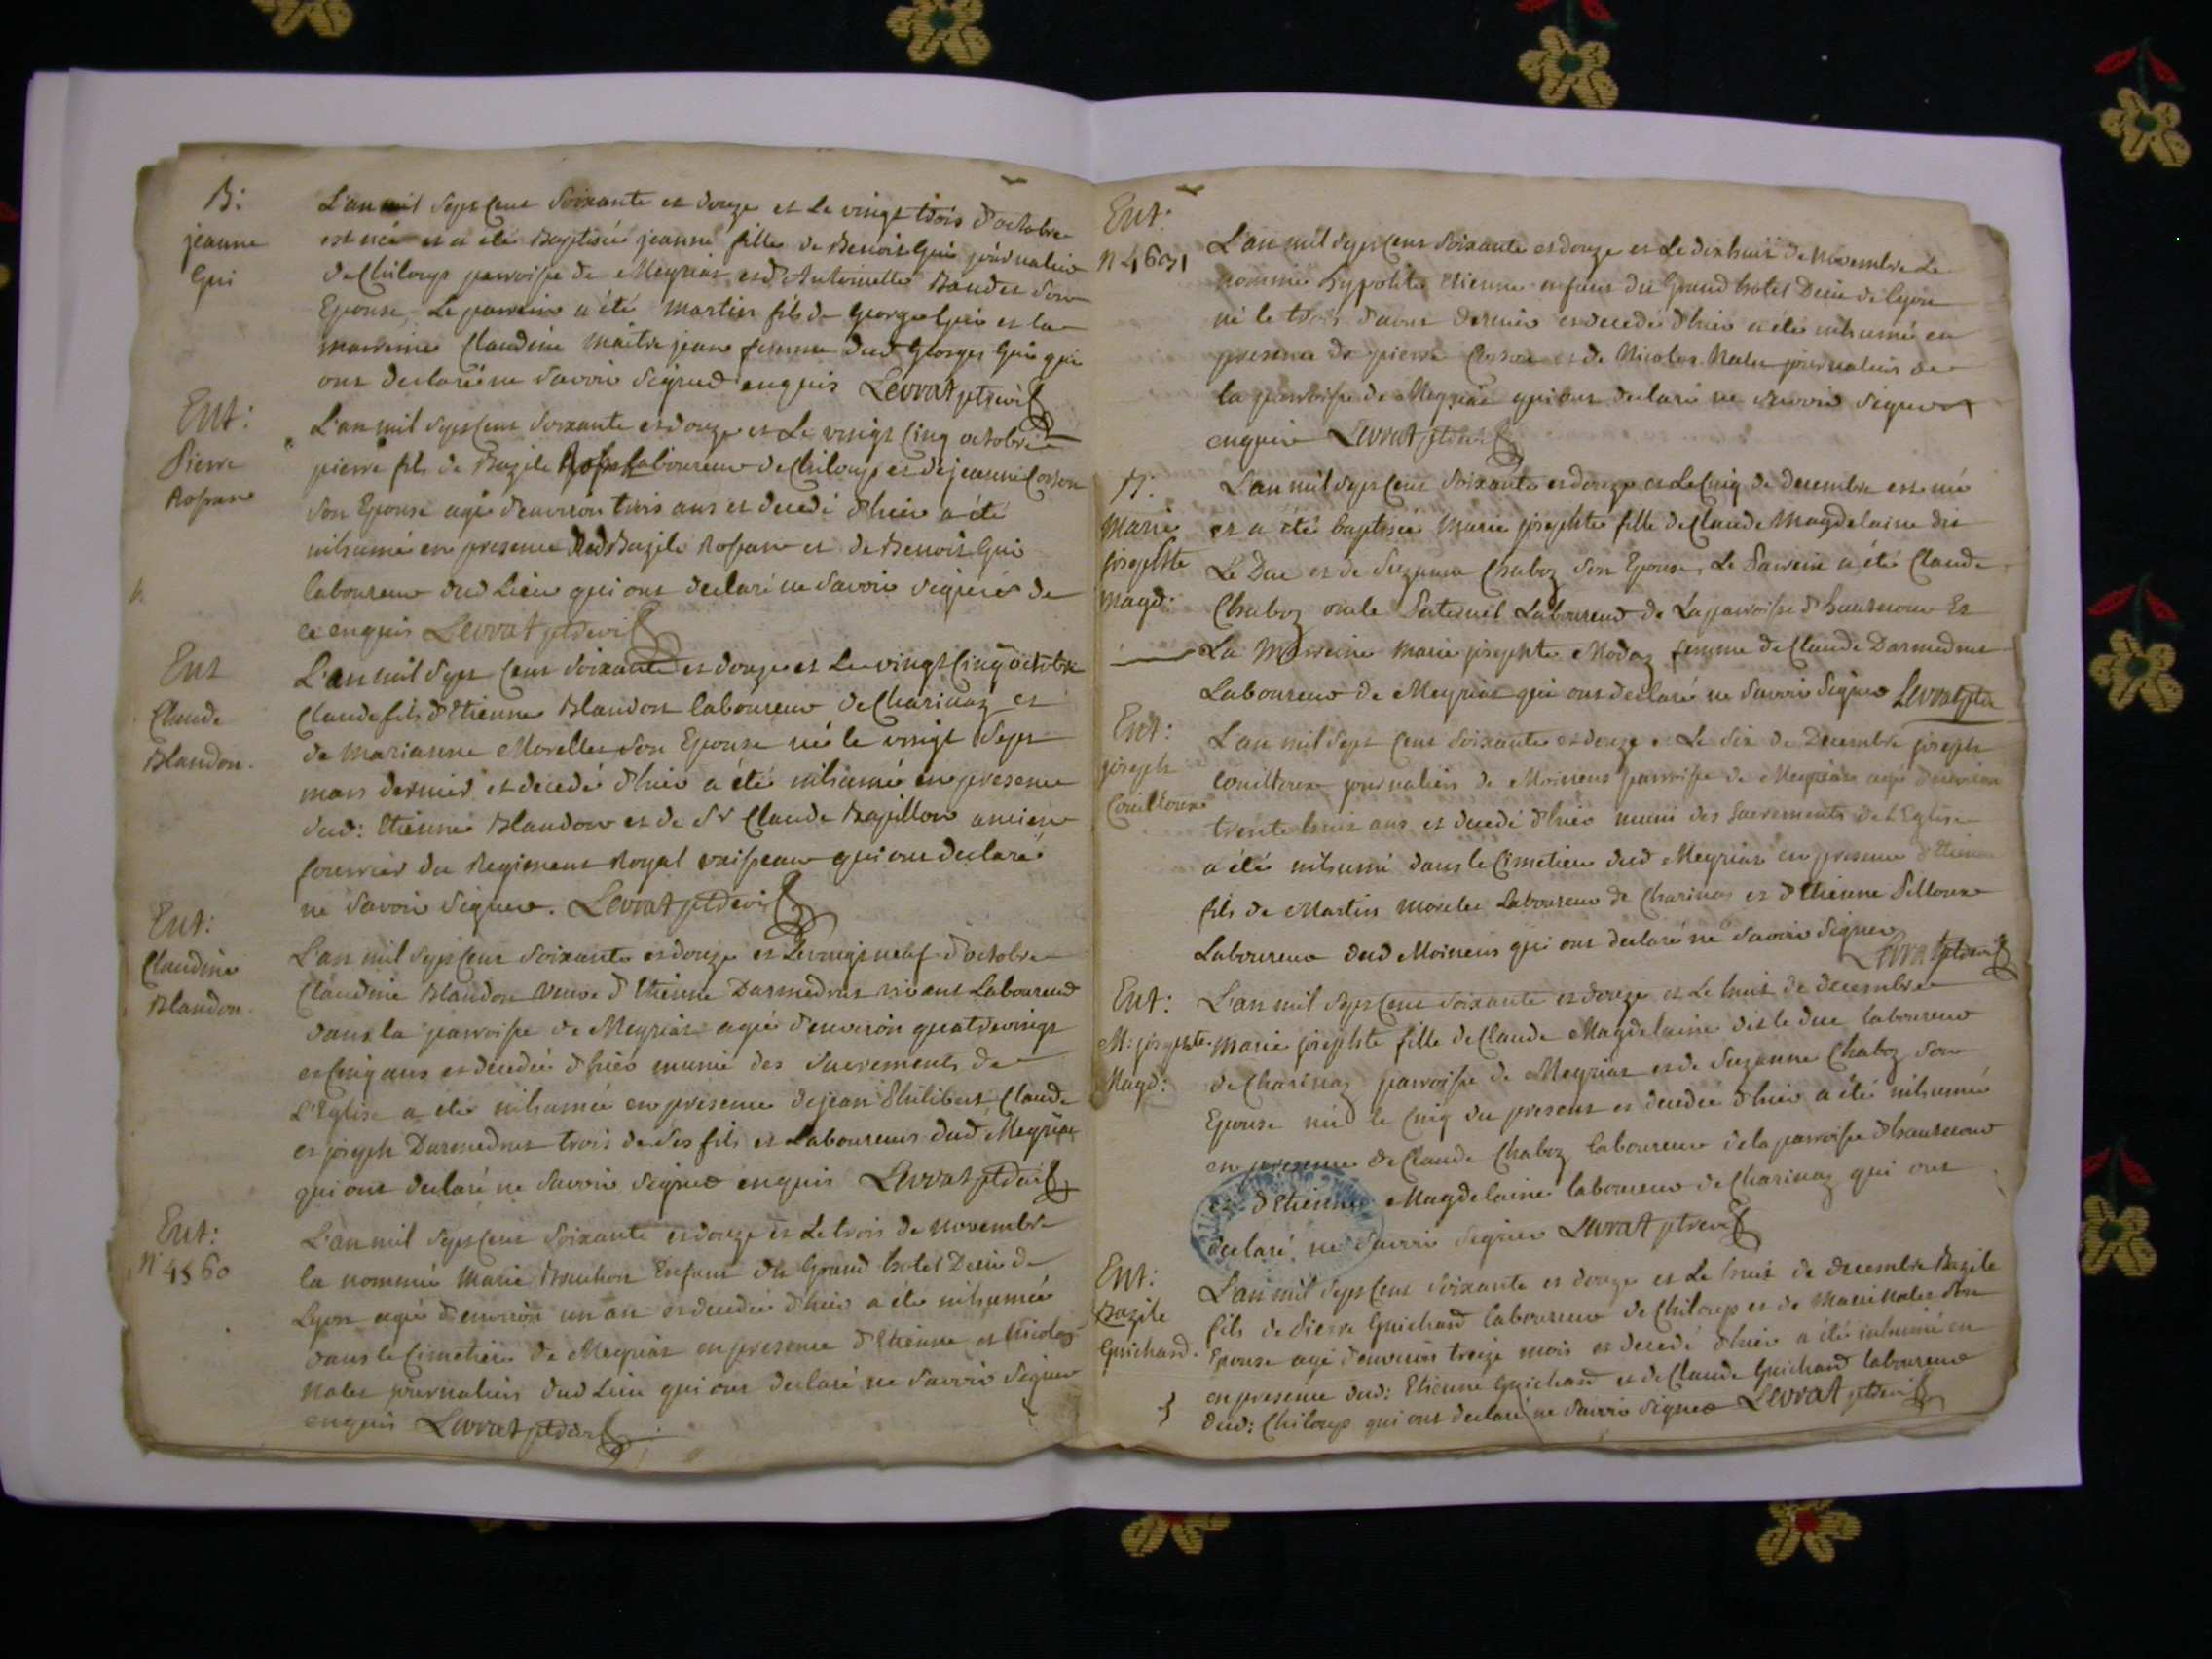 B:
jeanne
Gui
L'an mil sept cent soixante et douze et le vingt trois d'octobre
est née et a été Baptisée jeanne fille de Benoit Gui journalier
de Chiloup parroisse de Meyriat et d'Antoinette Baudet son
Epouse, Le parrein a été Martin fils de George Gui et la
marreine Claudine Maitrejean femme dud Georges Gui qui
ont declaré ne savoir signer enquis Levrat ptrevic
Ent:
Pierre
Rossan
L'an mil sept cent soixante et douze et Le vingt cinq octobre
pierre fils de Bazile laboureur de Chiloup et de jeanne Corson
son Epouse agé d'environ trois ans et decedé d'hier a été
inhumé en presence dud Bazile Rossan et de Benoit Gui
laboureur dud Lieu qui ont declaré ne savoir signer de
ce enquis Levrat ptrevic
Ent
Claude
Blandon.
L'an mil sept cent soixante et douze et Le vingt cinq octobre
Claude fils d'Etienne Blandon laboureur de Charinaz et
de Marianne Morellet son Epouse né le vingt sept
mars dernier et decedé d'hier a été inhumé en presence
dud: Etienne Blandon et de Sr Claude Papillon ancien
fourrier du Regiment Royal vaisseau qui ont declaré
ne savoir signer. Levrat ptrevic
Ent:
Claudine
Blandon.
L'an mil sept cent soixante et douze et Le vingt neuf d'octobre
Claudine Blandon veuve d'Etienne Darmedrut vivant Laboureur
dans la parroisse de Meyriat agée d'environ quatrevingt
et cinq ans et decedée d'hier munie des sacrements de
L'Eglise a été inhumée en presence de jean Philibert, Claude
et joseph Darmedrut trois de ses fils et Laboureurs dud Meyriat
qui ont declaré ne savoir signer enquis Levrat ptrevic
Ent:
N° 4560
L'an mil sept cent soixante et douze et Le trois de novembre
la nommée Marie Enfant du Grand hotel Dieu de
Lyon agée d'environ un an et decedée d'hier a été inhumée
dans le Cimetiere de Meyriat en presence d'Etienne et Nicolas
Nalet journaliers dud Lieu qui ont declaré ne savoir signer
enquis Levrat ptrevic
Ent:
N 4631
L'an mil sept cent soixante et douze et Le dix huit de novembre Le
nommé hypolite Etienne enfant du Grand hotel Dieu de Lyon
né le trois d'aout dernier et decedé d'hier a été inhumé en
presence de pierre Corson et de Nicolas Nalet journaliers de
la parroisse de Meyriat qui ont declaré ne savoir signer
enquis Levrat ptrevic
B:
Marie
josephte
Magd:
L'an mil sept cent soixante et douze et Le cinq de decembre est née
et a été baptisée Marie josephte fille de Claude Magdelaine dit
Le Duc et de Suzanne Chaboz son Epouse, Le Parrein a été Claude
Chaboz oncle Paternel Laboureur de La parroisse d'hautecour Et
La Marreine Marie josephte Modaz femme de Claude Darmedrut
Laboureur de Meyriat qui ont declaré ne savoir signer Levrat ptre
Ent:
joseph
Couilloux
L'an mil sept cent soixante et douze et Le six de Decembre joseph
Couilloux journalier de Moinens parroisse de Meyriat agé d'environ
trente huit ans et decedé d'hier muni des sacrements de l'Eglise
a été inhumé dans le Cimetiere dud Meyriat en presence d'Etienne
fils de Martin Morelet Laboureur de Charinas et d'Etienne Pilloux
Laboureur dud Moinens qui ont declaré ne savoir signer
Levrat ptrevic
Ent:
M: josephte
Magd:
L'an mil sept cent soixante et douze et Le huit de decembre
Marie josephte fille de Claude Magdelaine dit le duc laboureur
de Charinaz parroisse de Meyriat et de Suzanne Chaboz son
Epouse née le cinq du present et decedée d'hier a été inhumée
en presence de Claude Chaboz laboureur de la parroisse d'hautecour
et d'Etienne Magdelaine laboureur de Charinaz qui ont
declaré ne savoir signer Levrat ptrevic
Ent:
Bazile
Guichard.
L'an mil sept cent soixante et douze et Le huit de decembre Bazile
fils de Pierre Guichard laboureur de Chiloup et de Marie Nalet son
Epouse agé d'environ treize mois et decedé d'hier a été inhumé en
en presence dud: Etienne Guichard et de Claude Guichard laboureur
dud: Chiloup qui ont declaré ne savoir signer Levrat ptrevic